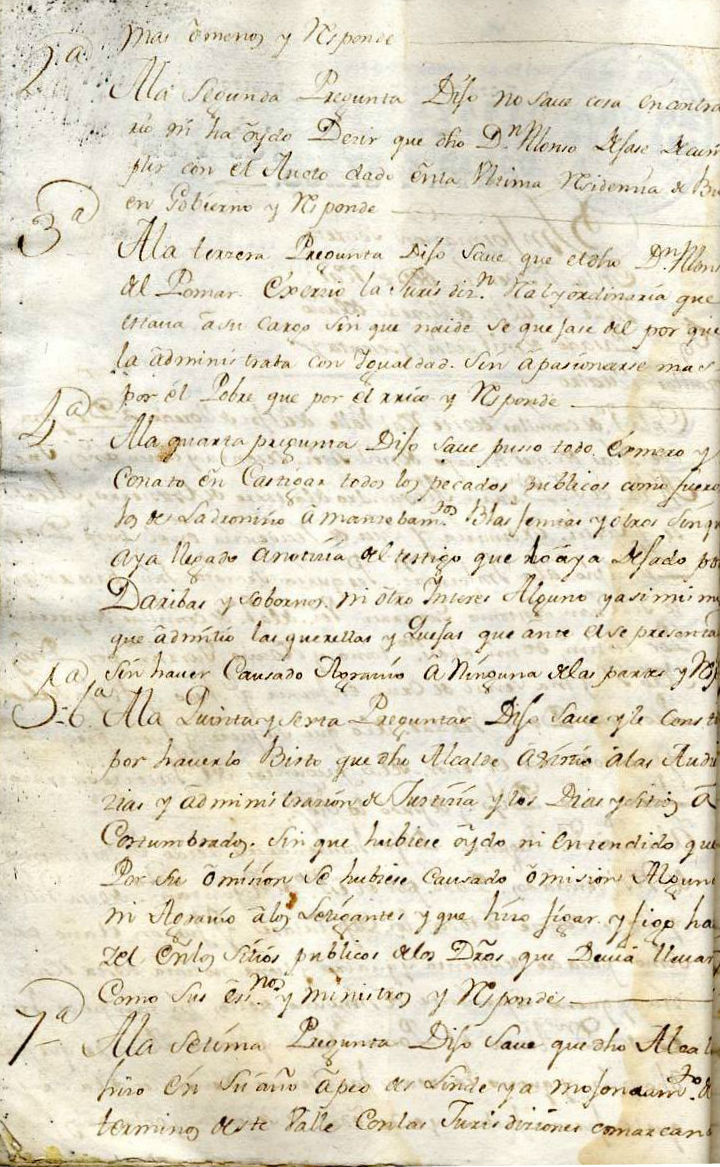 mas o menos y Responde
2ª
A la Segunda Pregunta Dijo no save cosa en contra
rio ni ha oydo Dezir que dho Dn Alonso dejase de cum
plir con el Auto dado en la Ultima Residencia de Bu
en Gobierno y Responde
3ª
A la terzera Pregunta Dijo Save que el dho Dn Alons
del Pomar Exerzio la Jurisdizn Rl y ordinaria que
estava a su cargo sin que naide se quejase del por que
la administraba con Ygualdad. Sin apasionarse mas
por el Pobre que por el rrico y Responde
4ª
A la quarta pregunta Dijo Save pusso todo Esmero y
Conato en Castigar todos los pecados publicos como fuero
los de Ladronizio Amanzebamtos Blasfemias y otros sin qu
aya llegado a notizia del testigo que lo aya dejado po
Daribas y Sobornos ni otro Ynteres Alguno y asimismo
que admitio las querellas y Quejas que ante el se presenta
Sin haver Causado Agravio a Ninguna de las partes y Resp
5-6ª
A la Quinta y sexta Preguntas Dijo Save y le Const
por haverlo Bisto que dho Alcalde asistio a las Audi
zias y administrazion de Justizia y los Dias y sitios A
Costumbrados. Sin que hubiese oydo ni entendido que
Por su omision se hubiese causado omision Algun
ni Agravio a los Letigantes y que hizo fijar y fijo ha
zel en los sitios publicos de los Dros que Devia llevar
Como sus Essnos y ministros y Responde
7ª
A la Setima Pregunta Dijo Save que dho Alcal
hizo en su año apeo de Linde y amojonamto de
terminos deste Valle con las Jurisdiziones comarcan